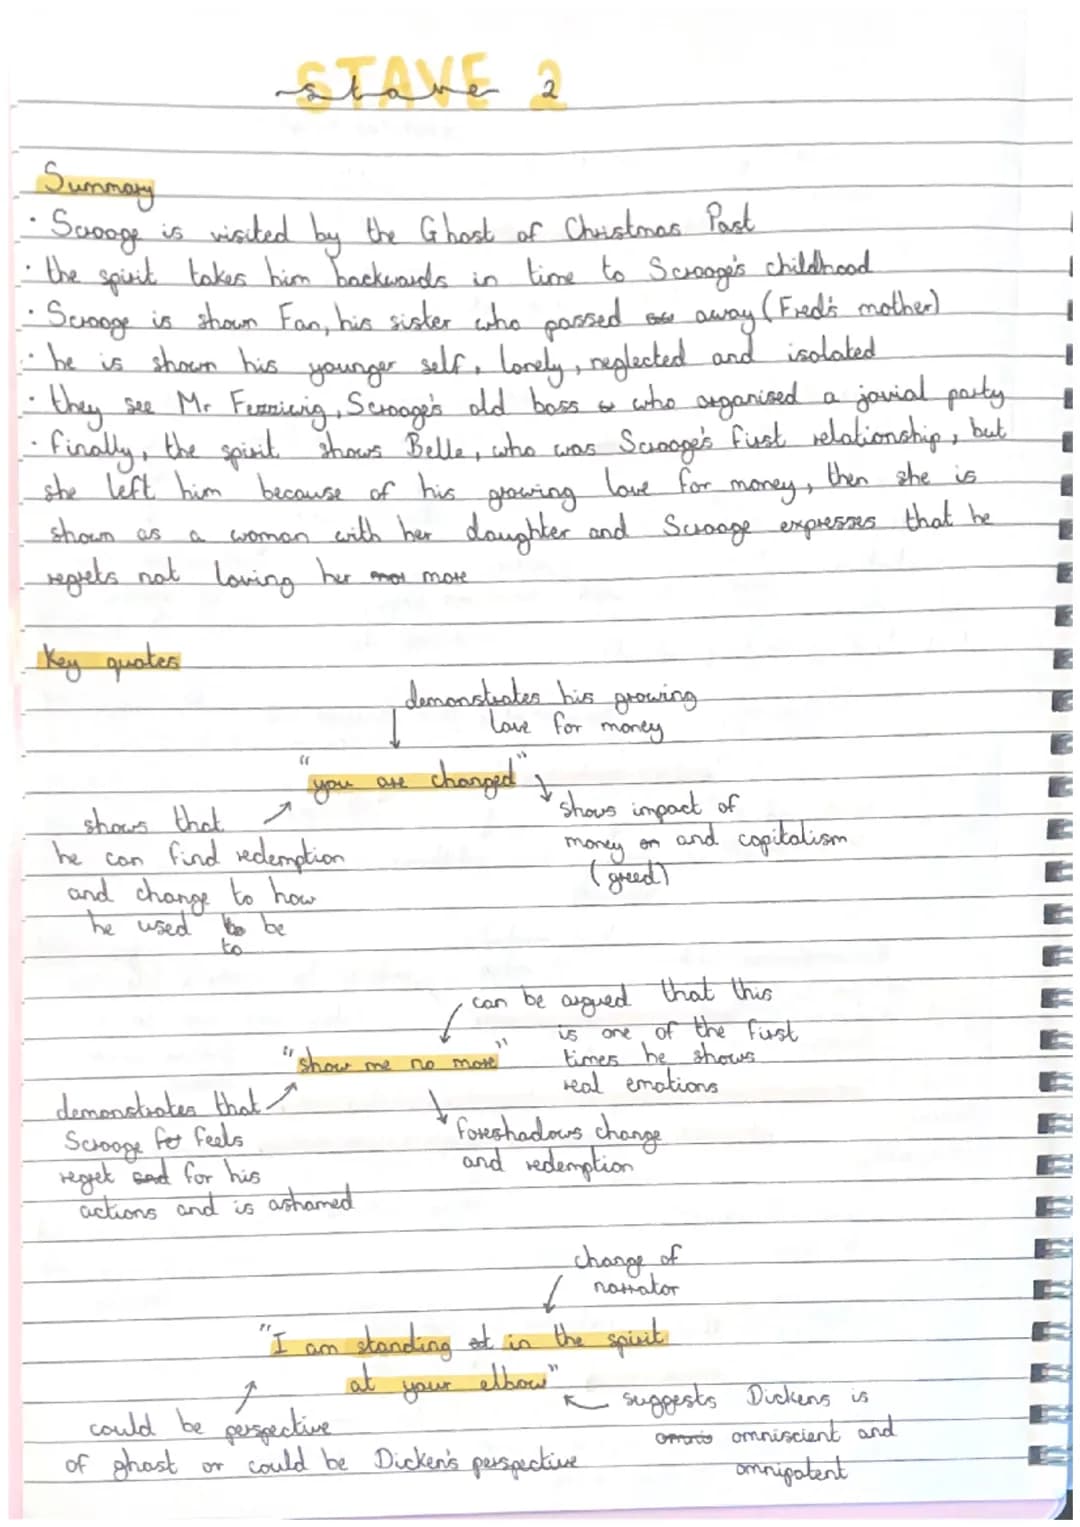 STAVE 2
stave 2
Summary
· Scrooge is visited by the Ghost of Christmas Past
· the spirit takes him backwards in time to Scrooge's childhood
· Scrooge is shown Fan, his sister who passed away (Fred's mother)
· he is shown his younger self, lonely, neglected and isolated
· they see Mr Fezziwig, Scrooge's old boss who organised a jovial party
· finally, the spirit shows Belle, who was Scrooge's first relationship, but
she left him because of his growing love for money, then she is
shown as a woman with her daughter and Scrooge expresses that he
regrets not loving her more
Key quotes
demonstrates his growing
love for money
"you are changed"
shows that
he can find redemption
and change to how
he used to be
to
shows impact of
money on and capitalism
(greed)
can be argued that this
is one of the first
times he shows
real emotions
"show me no more"
demonstrates that
Scrooge feels
regret for his
actions and is ashamed
foreshadows change
and redemption
change of
narrator
"I am standing in the spirit
at your elbow"
could be perspective
of ghost or could be Dicken's perspective
suggests Dickens is
omniscient and
omnipotent